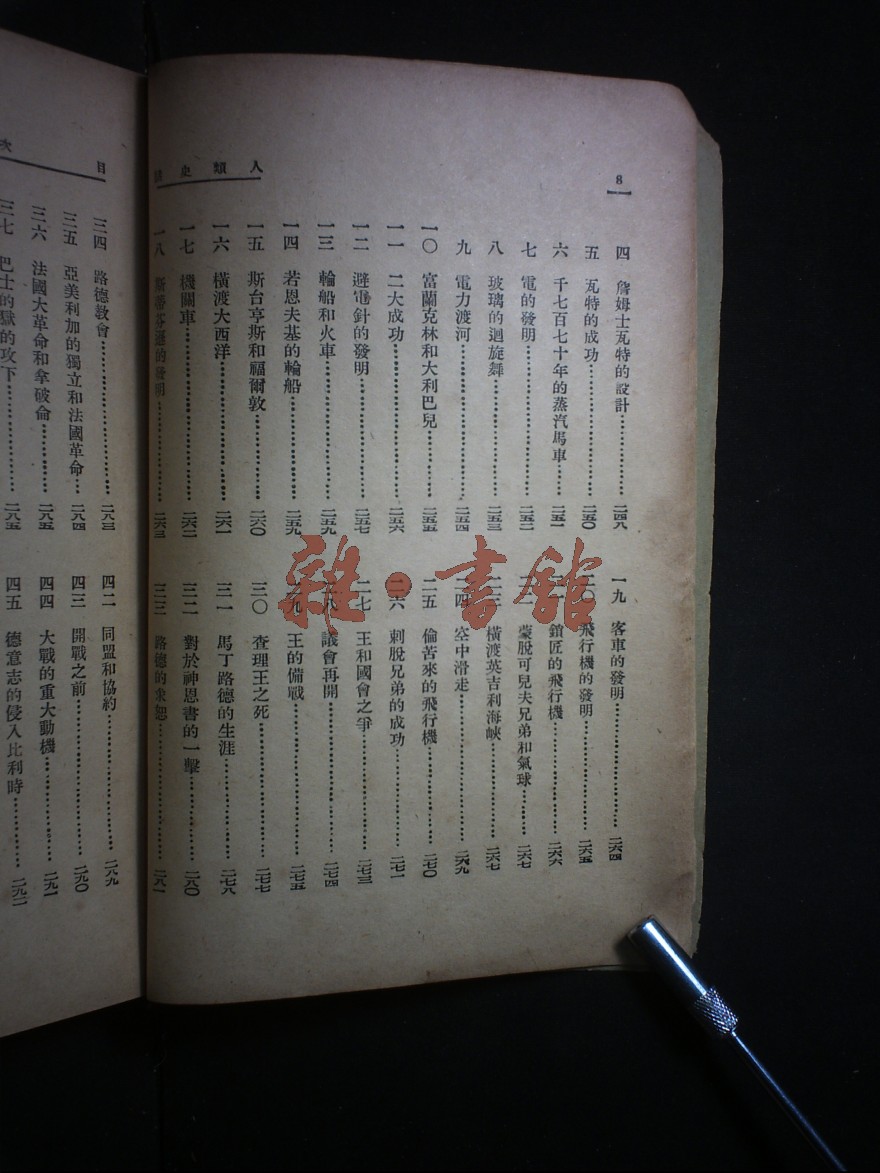 8
人類史
四 詹姆士瓦特的設計……二四八
五 瓦特的成功……二五〇
六 千七百七十年的蒸汽馬車……二五一
七 電的發明……二五二
八 玻璃的迴旋舞……二五三
九 電力渡河……二五四
一〇 富蘭克林和大利巴兒……二五五
一一 二大成功……二五六
一二 避電針的發明……二五七
一三 輪船和火車……二五九
一四 若恩夫基的輪船……二五九
一五 斯台亨斯和福爾敦……二六〇
一六 橫渡大西洋……二六一
一七 機關車……二六二
一八 斯蒂芬遜的發明……二六三
一九 客車的發明……二六四
二〇 飛行機的發明……二六五
鎖匠的飛行機……二六六
蒙脫可兒夫兄弟和氣球……二六七
二三 橫渡英吉利海峽……二六七
二四 空中滑走……二六九
二五 倫苦來的飛行機……二七〇
二六 刺脫兄弟的成功……二七一
二七 王和國會之爭……二七三
二八 議會再開……二七四
二九 王的備戰……二七五
三〇 查理王之死……二七七
三一 馬丁路德的生涯……二七八
三二 對於神恩書的一擊……二八〇
三三 路德的來恕……二八一
目次
三四 路德教會……二八三
三五 亞美利加的獨立和法國革命……二八四
三六 法國大革命和拿破侖……二八五
三七 巴士的獄的攻下……二八五
四二 同盟和協約……二八九
四三 開戰之前……二九〇
四四 大戰的重大動機……二九一
四五 德意志的侵入比利時……二九二
雜·書館